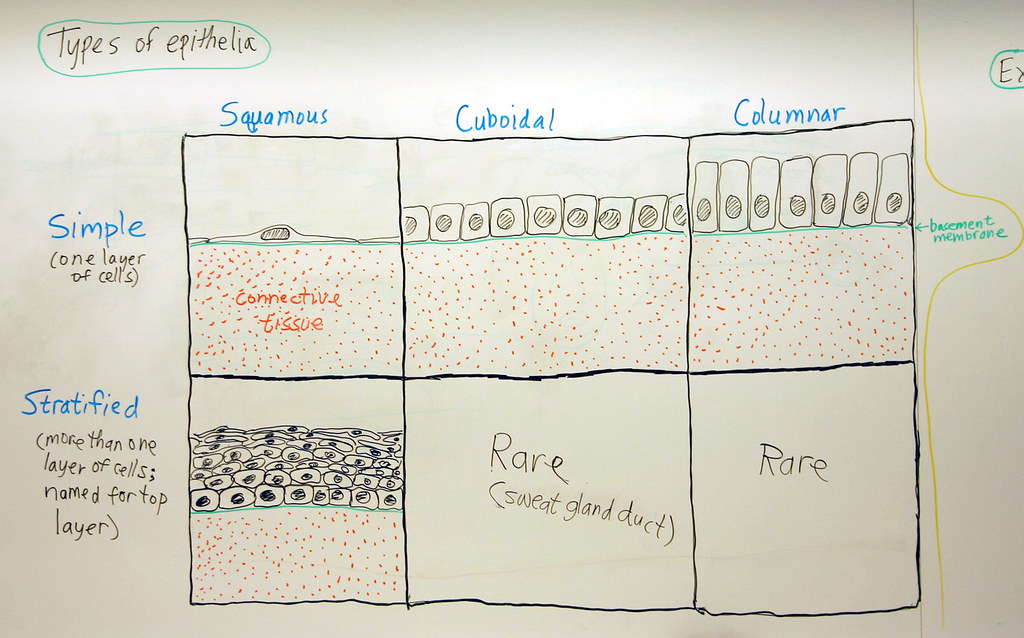 Types of epithelia
Ex
Squamous
Cuboidal
Columnar
Simple
(one layer
of cells)
basement
membrane
connective
tissue
Stratified
(more than one
layer of cells;
named for top
layer)
Rare
(sweat gland duct)
Rare